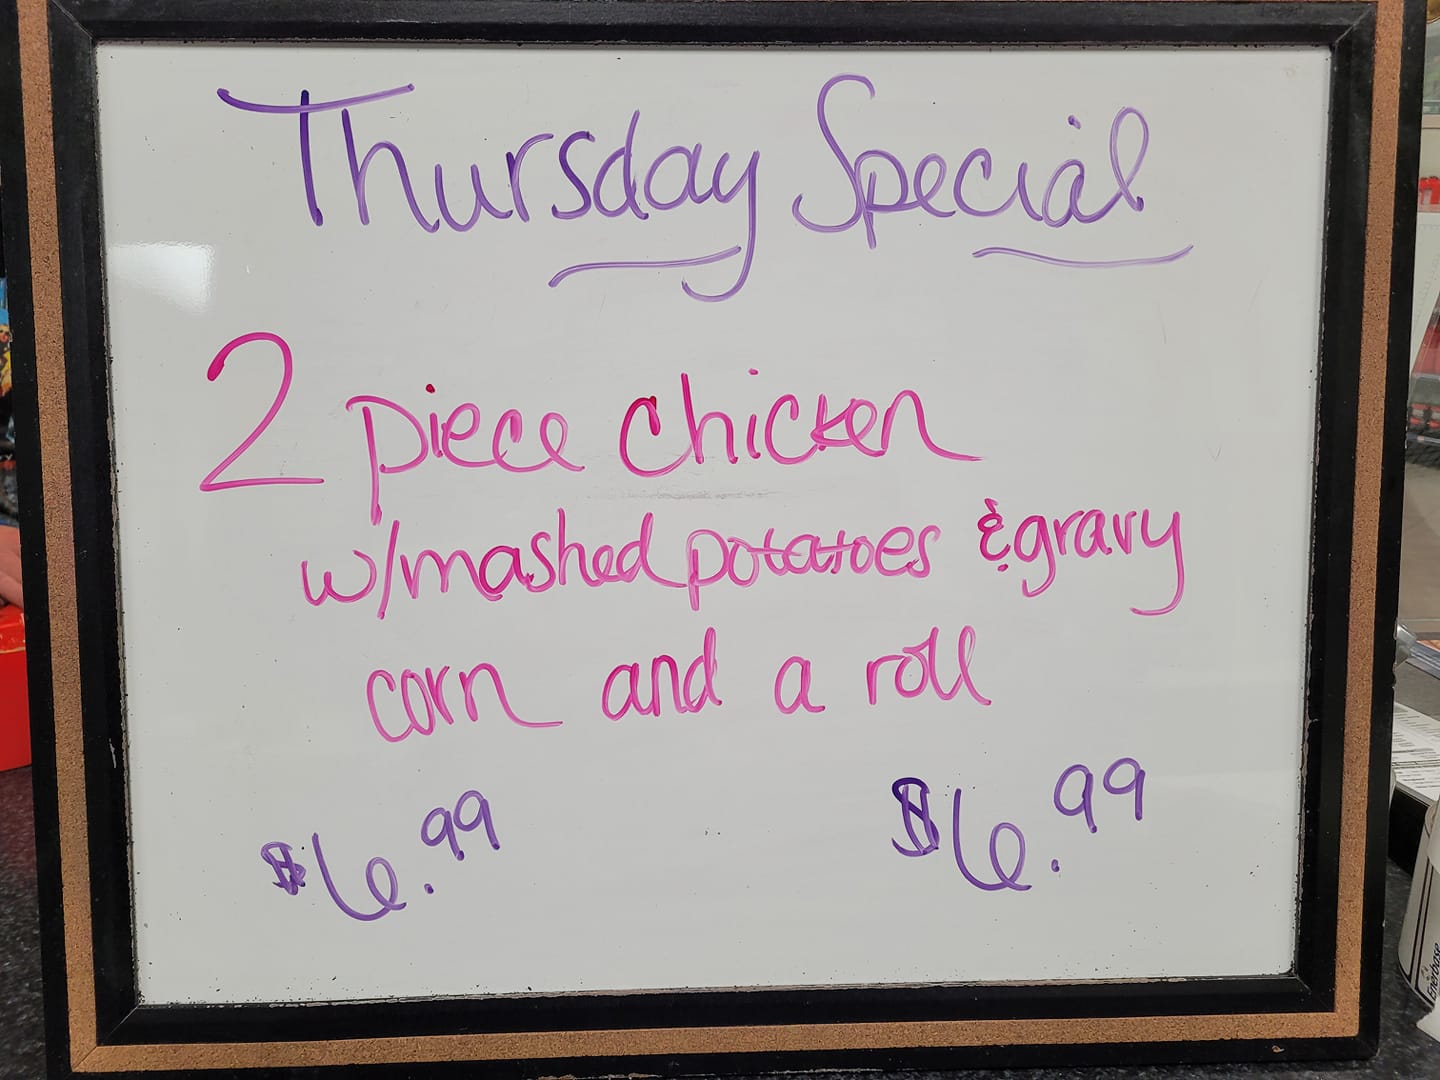 Thursday Special
2 piece chicken
w/mashed potatoes & gravy
corn and a roll
$6.99 $6.99
Enerbase